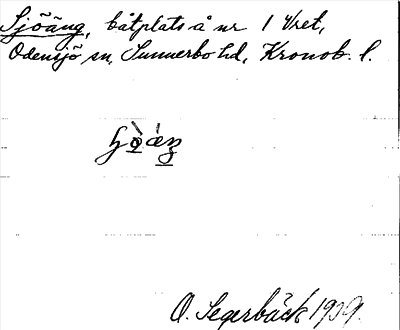 Sjöäng, båtplats å nr 1 Vret,
Odensjö sn, Sunnerbo hd, Kronob. l.
O. Segerbäck 1929.